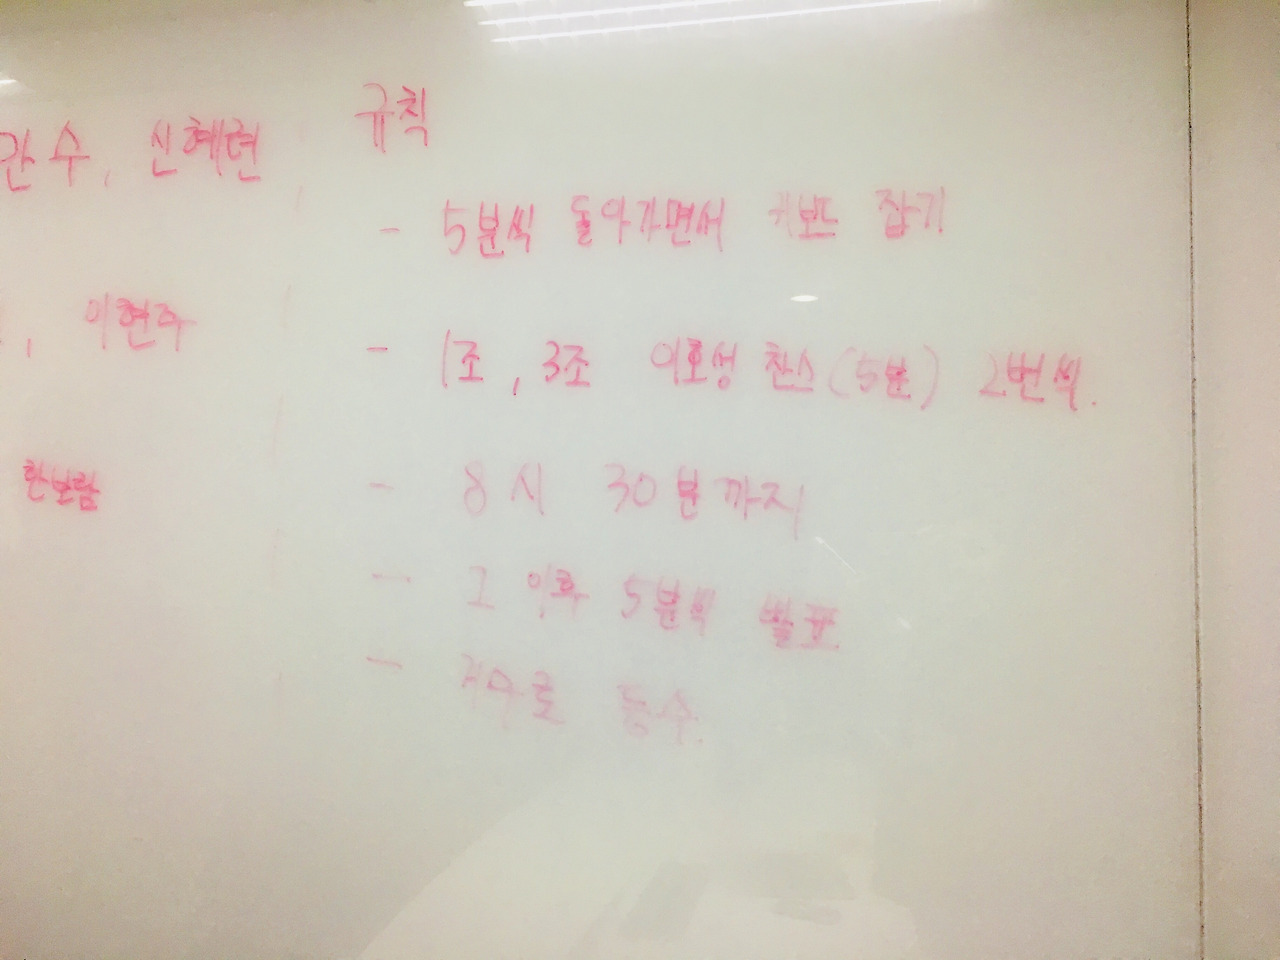 수, 신혜련
, 이현주
한보람
규칙
- 5분씩 돌아가면서 키보드 잡기
- 1조, 3조 이호성 찬스(5분) 2번씩.
- 8시 30분까지
- 그 이후 5분씩 발표
- 등수.